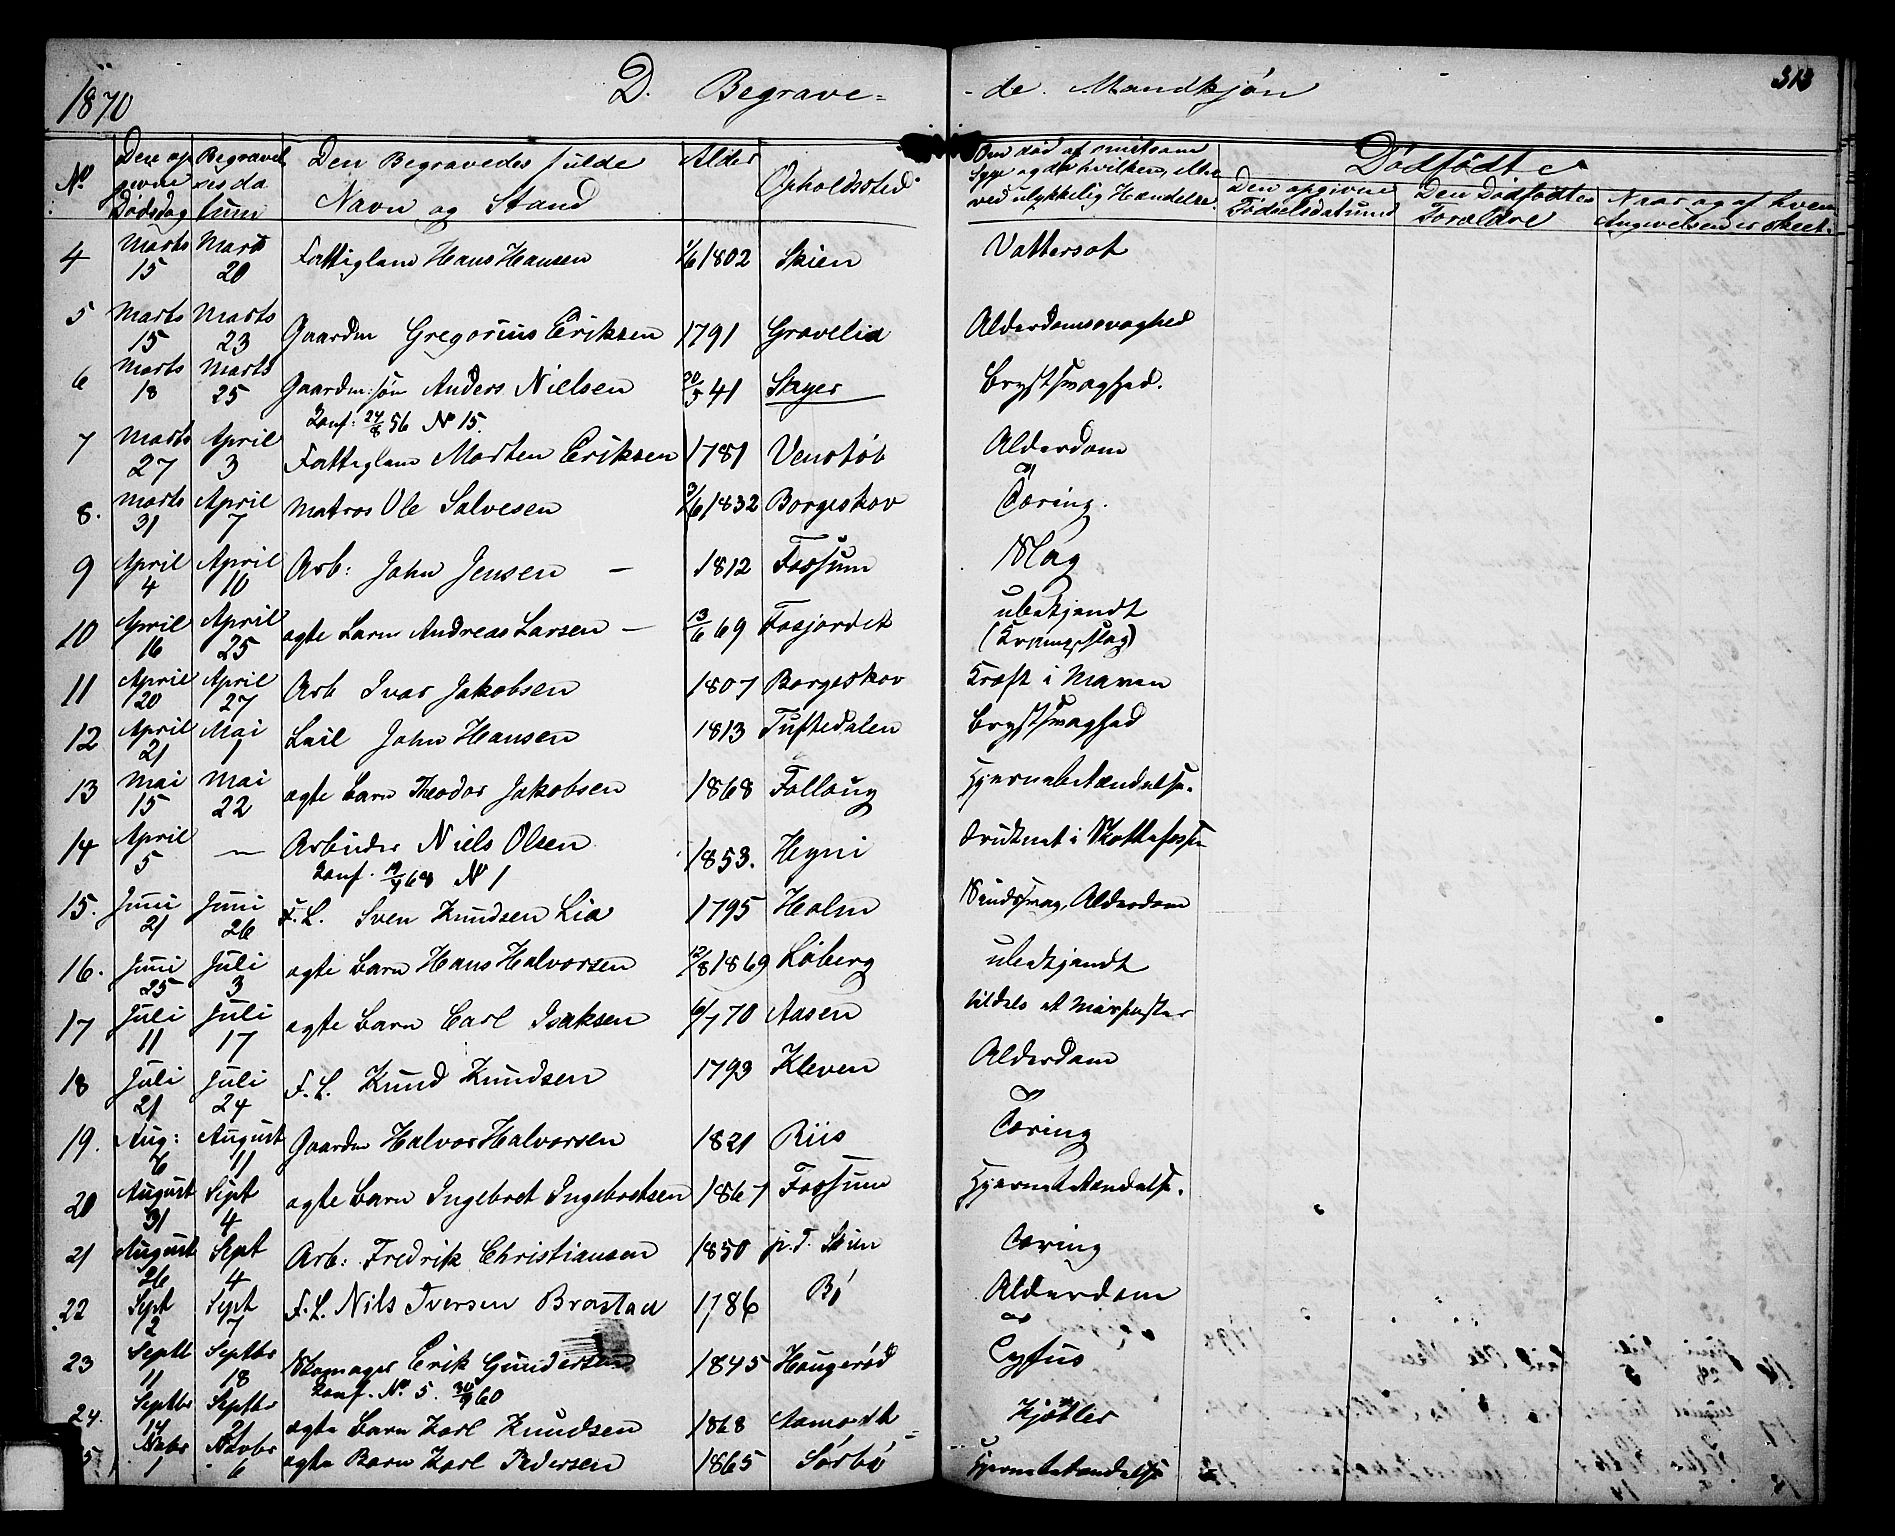 1870 D. Begrave= -de. Mandkjøn 313
No Den op givne Dødsdag Begravel sesda tum Den Begravedes fulde Navn og Stand Alder Opholdssted Om død af smitsom Syge og da hvilken, eller ved ulykkelig Hændelse. Dødfødte
Den opgivne Fødselsdatum Den Dødfødtes Forældre Naar og af hvem Angivelsen er skeet.
4 Marts 15 Marts 20 Fattiglem Hans Hansen 1/6 1802 Skien Vattersot
5 Marts 15 Marts 23 Gaardm Gregorius Eriksen 1791 Gravelia Alderdomssvaghed
6 Marts 18 Marts 25 Gaardm: søn Anders Nielsen 20/5 41 Skyer Brystsvaghed.
Konf: 24/8 56 No 15.
7 Marts 27 April 3 Fattiglem Morten Eriksen 1781 Venstøb Alderdom
8. Marts 31 April 7 Matros Ole Salvesen 3/6 1832 Borgeskov Tæring.
9 April 4 April 10 Arb: John Jensen — 1812 Fossum Slag
10 April 16 April 25 ægte Barn Andreas Larsen — 13/6 69 Fosjordet ubekjendt
(Krampeslag)
11 April 20 April 27 Arb Ivar Jakobsen 1807 Borgeskov Kræft i Maven
12 April 21 Mai 1 Leil John Hansen 1813 Tuftedalen Brystsvaghed
13 Mai 15 Mai 22 ægte Barn Theodor Jakobsen 1868 Follaug Hjernebetændelse.
14 April 5 — Arbeider Niels Olsen 1853. Hyni druknet i Skottefossen
Konf. No 1
15. Juni 21 Juni 26 F.L. Sven Knudsen Lia 1795 Holm Sindssvag, Alderdom
16. Juni 25 Juli 3 ægte Barn Hans Halvorsen 12/8 1869 Løberg ubekjendt
17 Juli 11 Juli 17 ægte Barn Carl Isaksen 6/7 70 Aasen
18 Juli 21 Juli 24 F.L. Knud Knudsen 1793 Kleven Alderdom
19. Aug: 6 August 11 Gaardm Halvor Halvorsen 1821 Riis Tæring
20 August 31 Sept 4 ægte Barn Ingebret Ingebretsen 1867 Fossum Hjernebetændelse.
21 August 26 Sept 4 Arb: Fredrik Christiansen 1850 p.T. Skien Tæring
22 Sept 2 Sept 7 F.L. Nils Iversen Brostad 1786 Bø Alderdom
23 Septb 11 Septbr 18 Skomager Erik Gundersen 1845 Haugerød Tyfus
Konf. No 5. 30/9 60
24. Septbr 14 Septbr 21 ægte Barn Karl Knudsen 1868 Aamodt Kjertler
5 Novbr 1 Novbr 6 ægte Barn Karl Pedersen 1865 Sørbø Hjernebetændelse